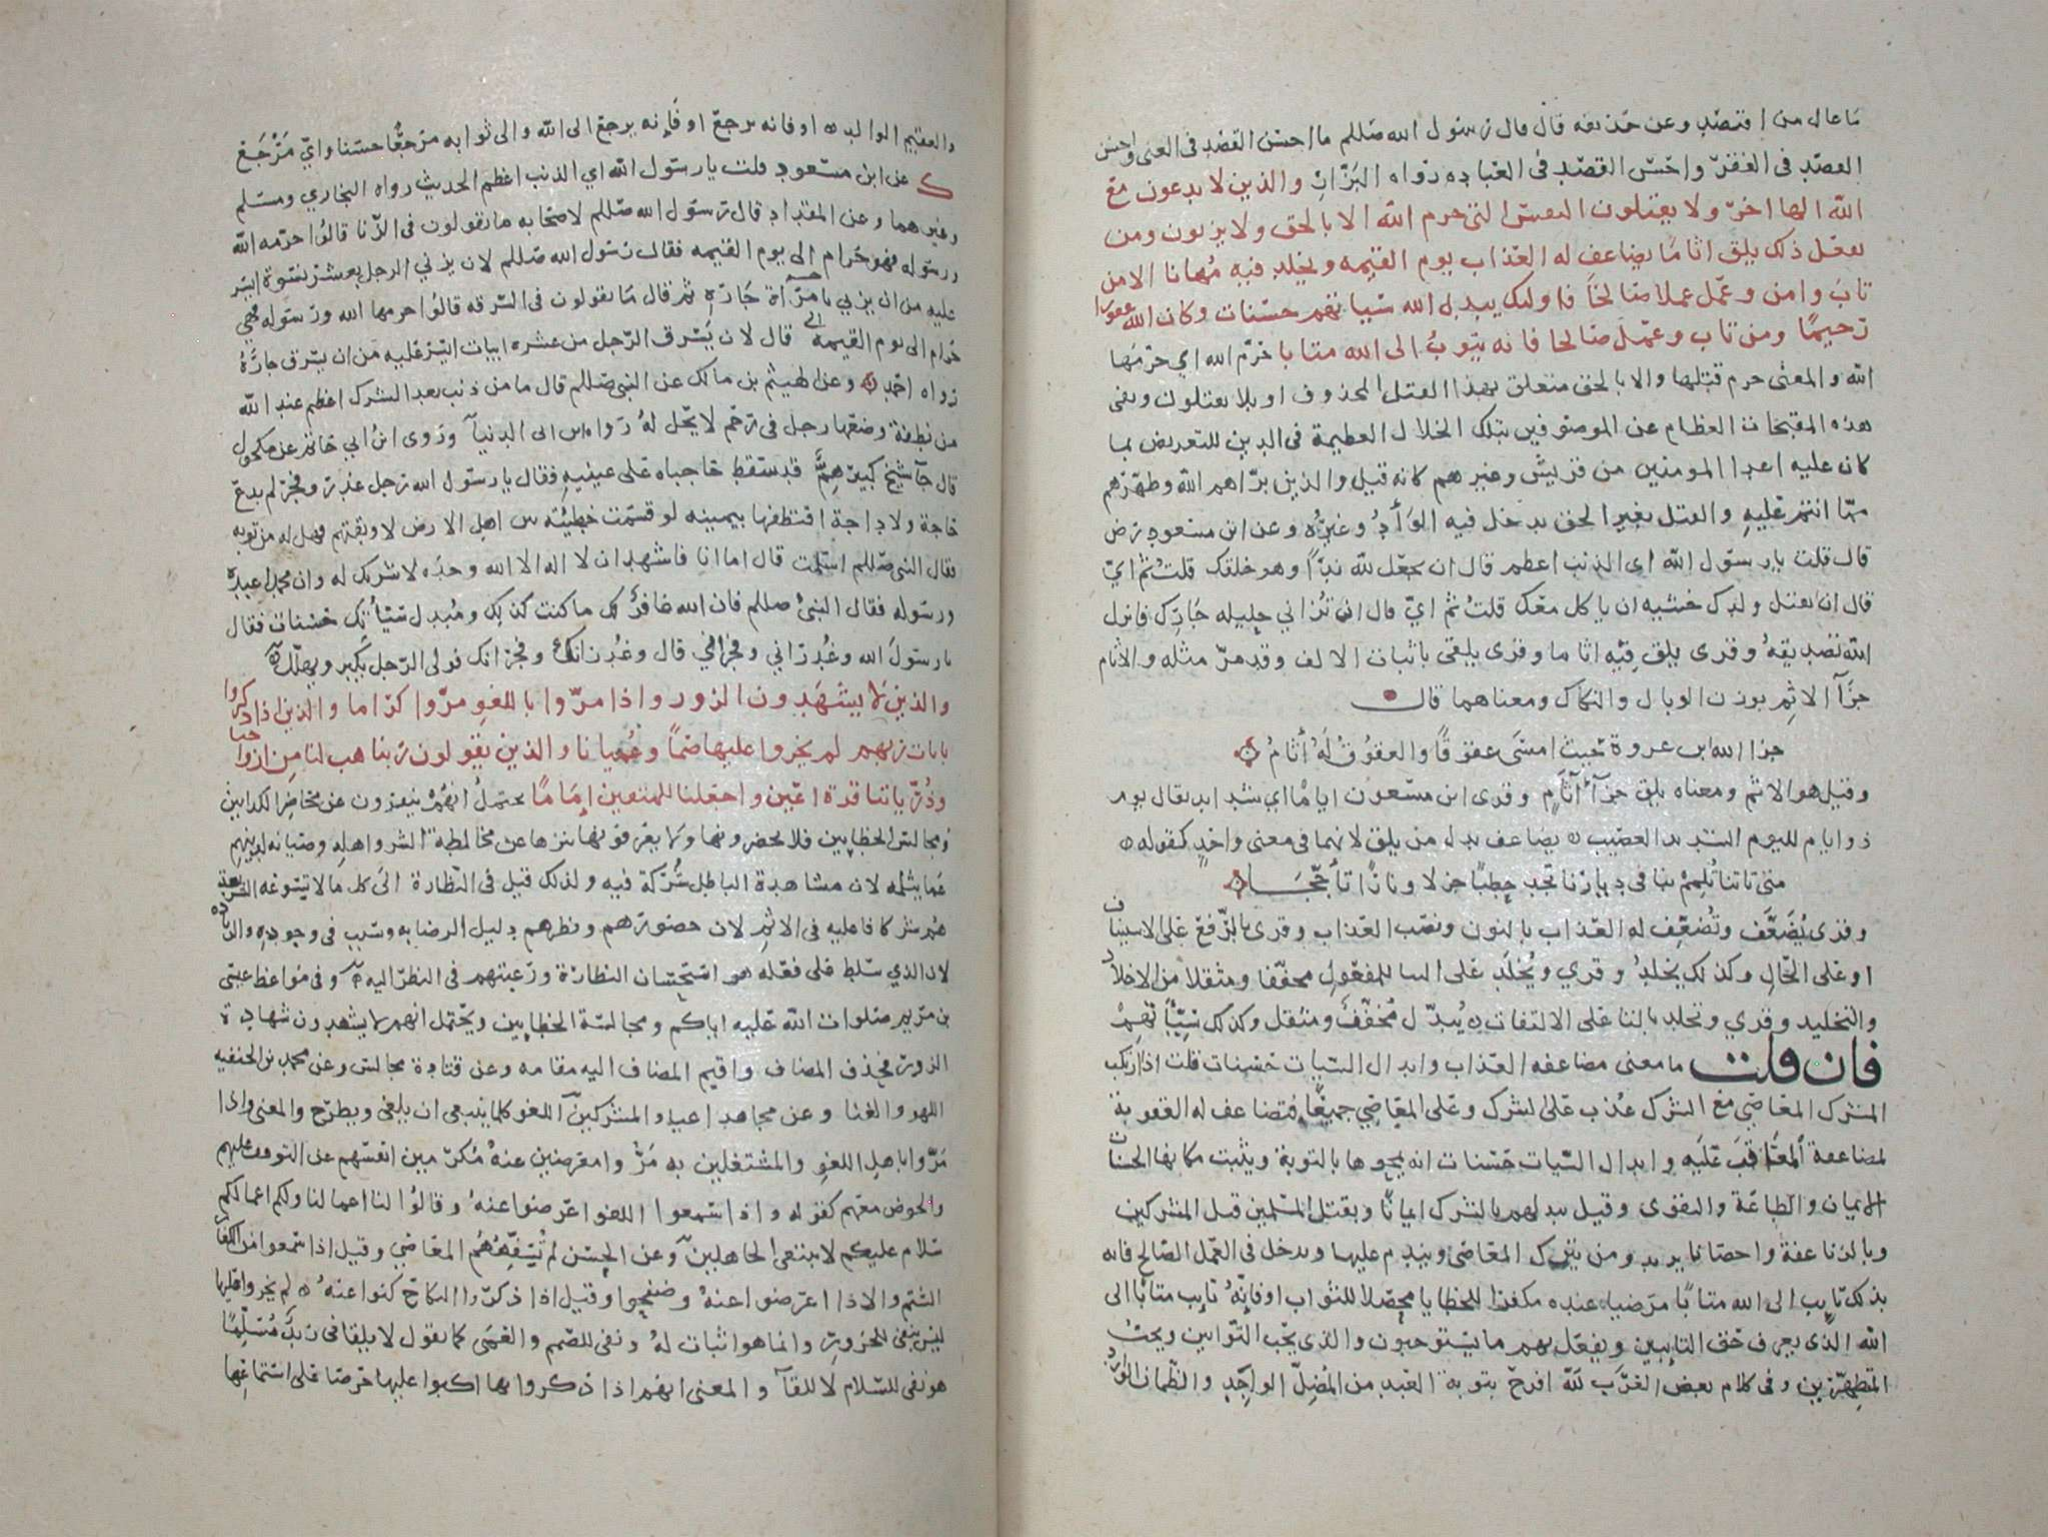 ما عال من اقتصد وعن حذيفه قال قال رسول الله صللم ما احسن القصد في الغنى واحسن
القصد في الفقر واحسن القصد في العباده رواه البزار والذين لا يدعون مع
الله الها اخر ولا يقتلون النفس التي حرم الله الا بالحق ولا يزنون ومن
يفعل ذلك يلق اثاما يضاعف له العذاب يوم القيمه ويخلد فيه مهانا الا من
تاب وامن وعمل عملا صالحا فاوليك يبدل الله سياتهم حسنات وكان الله غفورا
رحيما ومن تاب وعمل صالحا فانه يتوب الى الله متابا حرم الله اي حرمها
الله والمعنى حرم قتلها والا بالحق متعلق بهذا القتل المحذوف او بلا يقتلون ونفى
هذه المقبحات العظام عن الموصوفين بتلك الخلال العظيمة في الدين للتعريض بما
كان عليه اعدا المومنين من قريش وغيرهم كانه قيل والذين براهم الله وطهرهم
مما انتم عليه والقتل بغير الحق يدخل فيه الوأد وغيره وعن ابن مسعود رض
قال قلت يا رسول الله اي الذنب اعظم قال ان تجعل لله ندا وهو خلقك قلت ثم اي
قال ان تقتل ولدك خشيه ان ياكل معك قلت ثم اي قال ان تزاني حليله جارك فانزل
الله تصديقه وقرى يلق فيه اثاما وقرى يلقى باثبات الالف وقد مر مثله والاثام
جزآ الاثم بوزن الوبال والنكال ومعناهما قال
جزا الله ابن عروة حيث امسى عقوقا والعقوق له أثام
وقيل هو الاثم ومعناه يلق جزآ أثام وقرى ابن مسعود اياما اي شدايد يقال يوم
ذو ايام لليوم الشديد العصيب يضاعف بدل من يلق لانهما في معنى واحد كقوله
متى تاتنا تلمم بنا في ديارنا تجد حطبا جزلا ونارا تأججا
وقرى يضعف وتضعف له العذاب بالنون ونصب العذاب وقرى بالرفع على الاستيناف
او على الحال وكذلك يخلد وقري ويخلد على البنا للمفعول مخففا ومثقلا من الاخلاد
والتخليد وقري وتخلد بالتا على الالتفات يبدل مخفف ومثقل وكذلك سيأتهم
فان قلت ما معنى مضاعفه العذاب وابدال السيات حسنات قلت اذا ارتكب
المشرك المعاصي مع الشرك عذب على الشرك وعلى المعاصي جميعا فتضاعف له العقوبة
لمضاعفة المعاقب عليه وابدال السيات حسنات انه يمحوها بالتوبة ويثبت مكانها الحسنات
الايمان والطاعة والتقوى وقيل يبدلهم بالشرك ايمانا وبقتل المسلمين قتل المشركين
وبالزنا عفة واحصانا يريد ومن يترك المعاصي ويندم عليها ويدخل في العمل الصالح فانه
بذلك تايب الى الله متابا مرضيا عنده مكفرا للخطايا محصلا للثواب او فإنه تايب متابا الى
الله الذي يعرف حق التايبين ويفعل بهم ما يستوجبون والذي يحب التوابين ويحب
المتطهرين وفي كلام بعض العرب لله افرح بتوبة العبد من المضل الواجد والظمان الوارد
والعقيم الوالد او فانه يرجع او فإنه يرجع الى الله والى ثوابه مرجعا حسنا واي مرجع
ك عن ابن مسعود قلت يا رسول الله اي الذنب اعظم الحديث رواه البخاري ومسلم
وغيرهما وعن المقداد قال رسول الله صللم لاصحابه ما تقولون في الزنا قالوا حرمه الله
ورسوله فهو حرام الى يوم القيمه فقال رسول الله صللم لان يزني الرجل بعشر نسوة ايسر
عليه من ان يزني بامرآة جاره ثم قال ما تقولون في السرقه قالوا حرمها الله ورسوله فهي
حرام الى يوم القيمه قال لان يسرق الرجل من عشره ابيات ايسر عليه من ان يسرق جاره
رواه احمد وعن الهيثم بن مالك عن النبي صللم قال ما من ذنب بعد الشرك اعظم عند الله
من نطفة وضعها رجل في رحم لا يحل له رواه س الى الدنيا وروى ابن ابي حاتم عن مكحول
قال جآ شيخ كبير هرم قد سقط حاجباه على عينيه فقال يا رسول الله رجل غدر وفجر لم يدع
حاجة ولا داجة اقتطفها بيمينه لو قسمت خطيئته بين اهل الارض لاوبقتهم فهل له من توبه
فقال النبي صللم اسلمت قال اما انا فاشهد ان لا اله الا الله وحده لا شريك له وان محمدا عبده
ورسوله فقال النبي صللم فان الله غافر لك ما كنت كذلك ومبدل سيأتك حسنات فقال
يا رسول الله وغدراتي وفجراتي قال وغدراتك وفجراتك فولى الرجل يكبر ويهلل
والذين لا يشهدون الزور واذا مروا باللغو مروا كراما والذين اذا ذكروا
بايات ربهم لم يخروا عليها صما وعميانا والذين يقولون ربنا هب لنا من ازواجنا
وذرياتنا قرة اعين واجعلنا للمتقين إماما يحتمل انهم ينفرون عن محاضر الكذابين
ومجالس الخطايين فلا يحضرونها ولا يقربونها تنزها عن مخالطة الشر واهله وصيانه لدينهم
عما يثلمه لان مشاهدة الباطل شركة فيه ولذلك قيل في النظارة الى كل ما لا تسوغه الشريعة
هم شركا فاعليه في الاثم لان حضورهم ونظرهم دليل الرضا به وسبب في وجوده والزياده
لان الذي سلط على فعله هو استحسان النظارة ورغبتهم في النظر اليه وفي مواعظ عيسى
بن مريم صلوات الله عليه اياكم ومجالسة الخطايين ويحتمل انهم لا يشهدون شهادة
الزور فحذف المضاف واقيم المضاف اليه مقامه وعن قتادة مجالس وعن محمد بن الحنفيه
اللهو والغنا وعن مجاهد اعياد المشركين اللغو كلما ينبغي ان يلغى ويطرح والمعنى واذا
مروا باهل اللغو والمشتغلين به مروا معرضين عنه مكرمين انفسهم عن التوقف عليهم
والخوض معهم كقوله واذا سمعوا اللغو اعرضوا عنه وقالوا لنا اعمالنا ولكم اعمالكم
سلام عليكم لا نبتغي الجاهلين وعن الحسن لم تسفههم المعاصي وقيل اذا سمعوا من الكفار
الشتم والاذا اعرضوا عنه وصفحوا وقيل اذا ذكروا النكاح كنوا عنه لم يخروا عليها
ليس بنفي للخرور وانما هو اثبات له ونفى للصمم والعمى كما يقول لا يلقاني زيد مسلما
هو نفي للسلام لا للقآ والمعنى انهم اذا ذكروا بها اكبوا عليها حرصا على استماعها